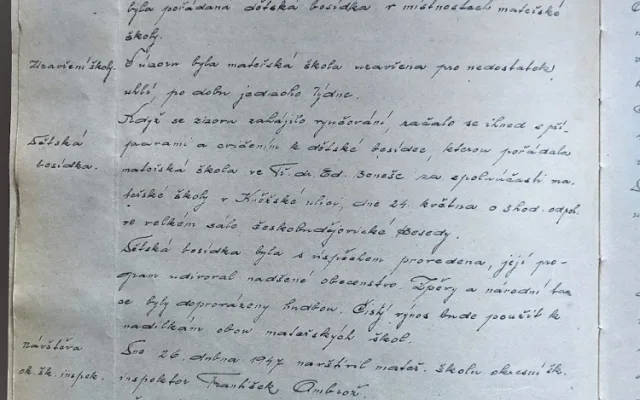 byla pořádána dětská besídka v místnostech mateřské
školy.
Uzavření školy. V únoru byla mateřská škola uzavřena pro nedostatek
uhlí, po dobu jednoho týdne.
Když se znovu zahájilo vyučování, začalo se ihned s pří-
Dětská pravami a cvičením k dětské besídce, kterou pořádala
besídka. mateřská škola ve Tř. dr. Ed. Beneše za spoluúčasti ma-
teřské školy v Kněžské ulici, dne 24. května o 3 hod. odpol.
ve velkém sále českobudějovické Besedy.
Dětská besídka byla s úspěchem provedena, její pro-
gram udivoval nadšené obecenstvo. Zpěvy a národní tan
ce byly doprovázeny hudbou. Čistý výnos bude použit k
nadílkám obou mateřských škol.
návštěva Dne 26. dubna 1947 navštívil mateř. školu okresní šk.
ok. šk. inspek. inspektor František Ambrož.